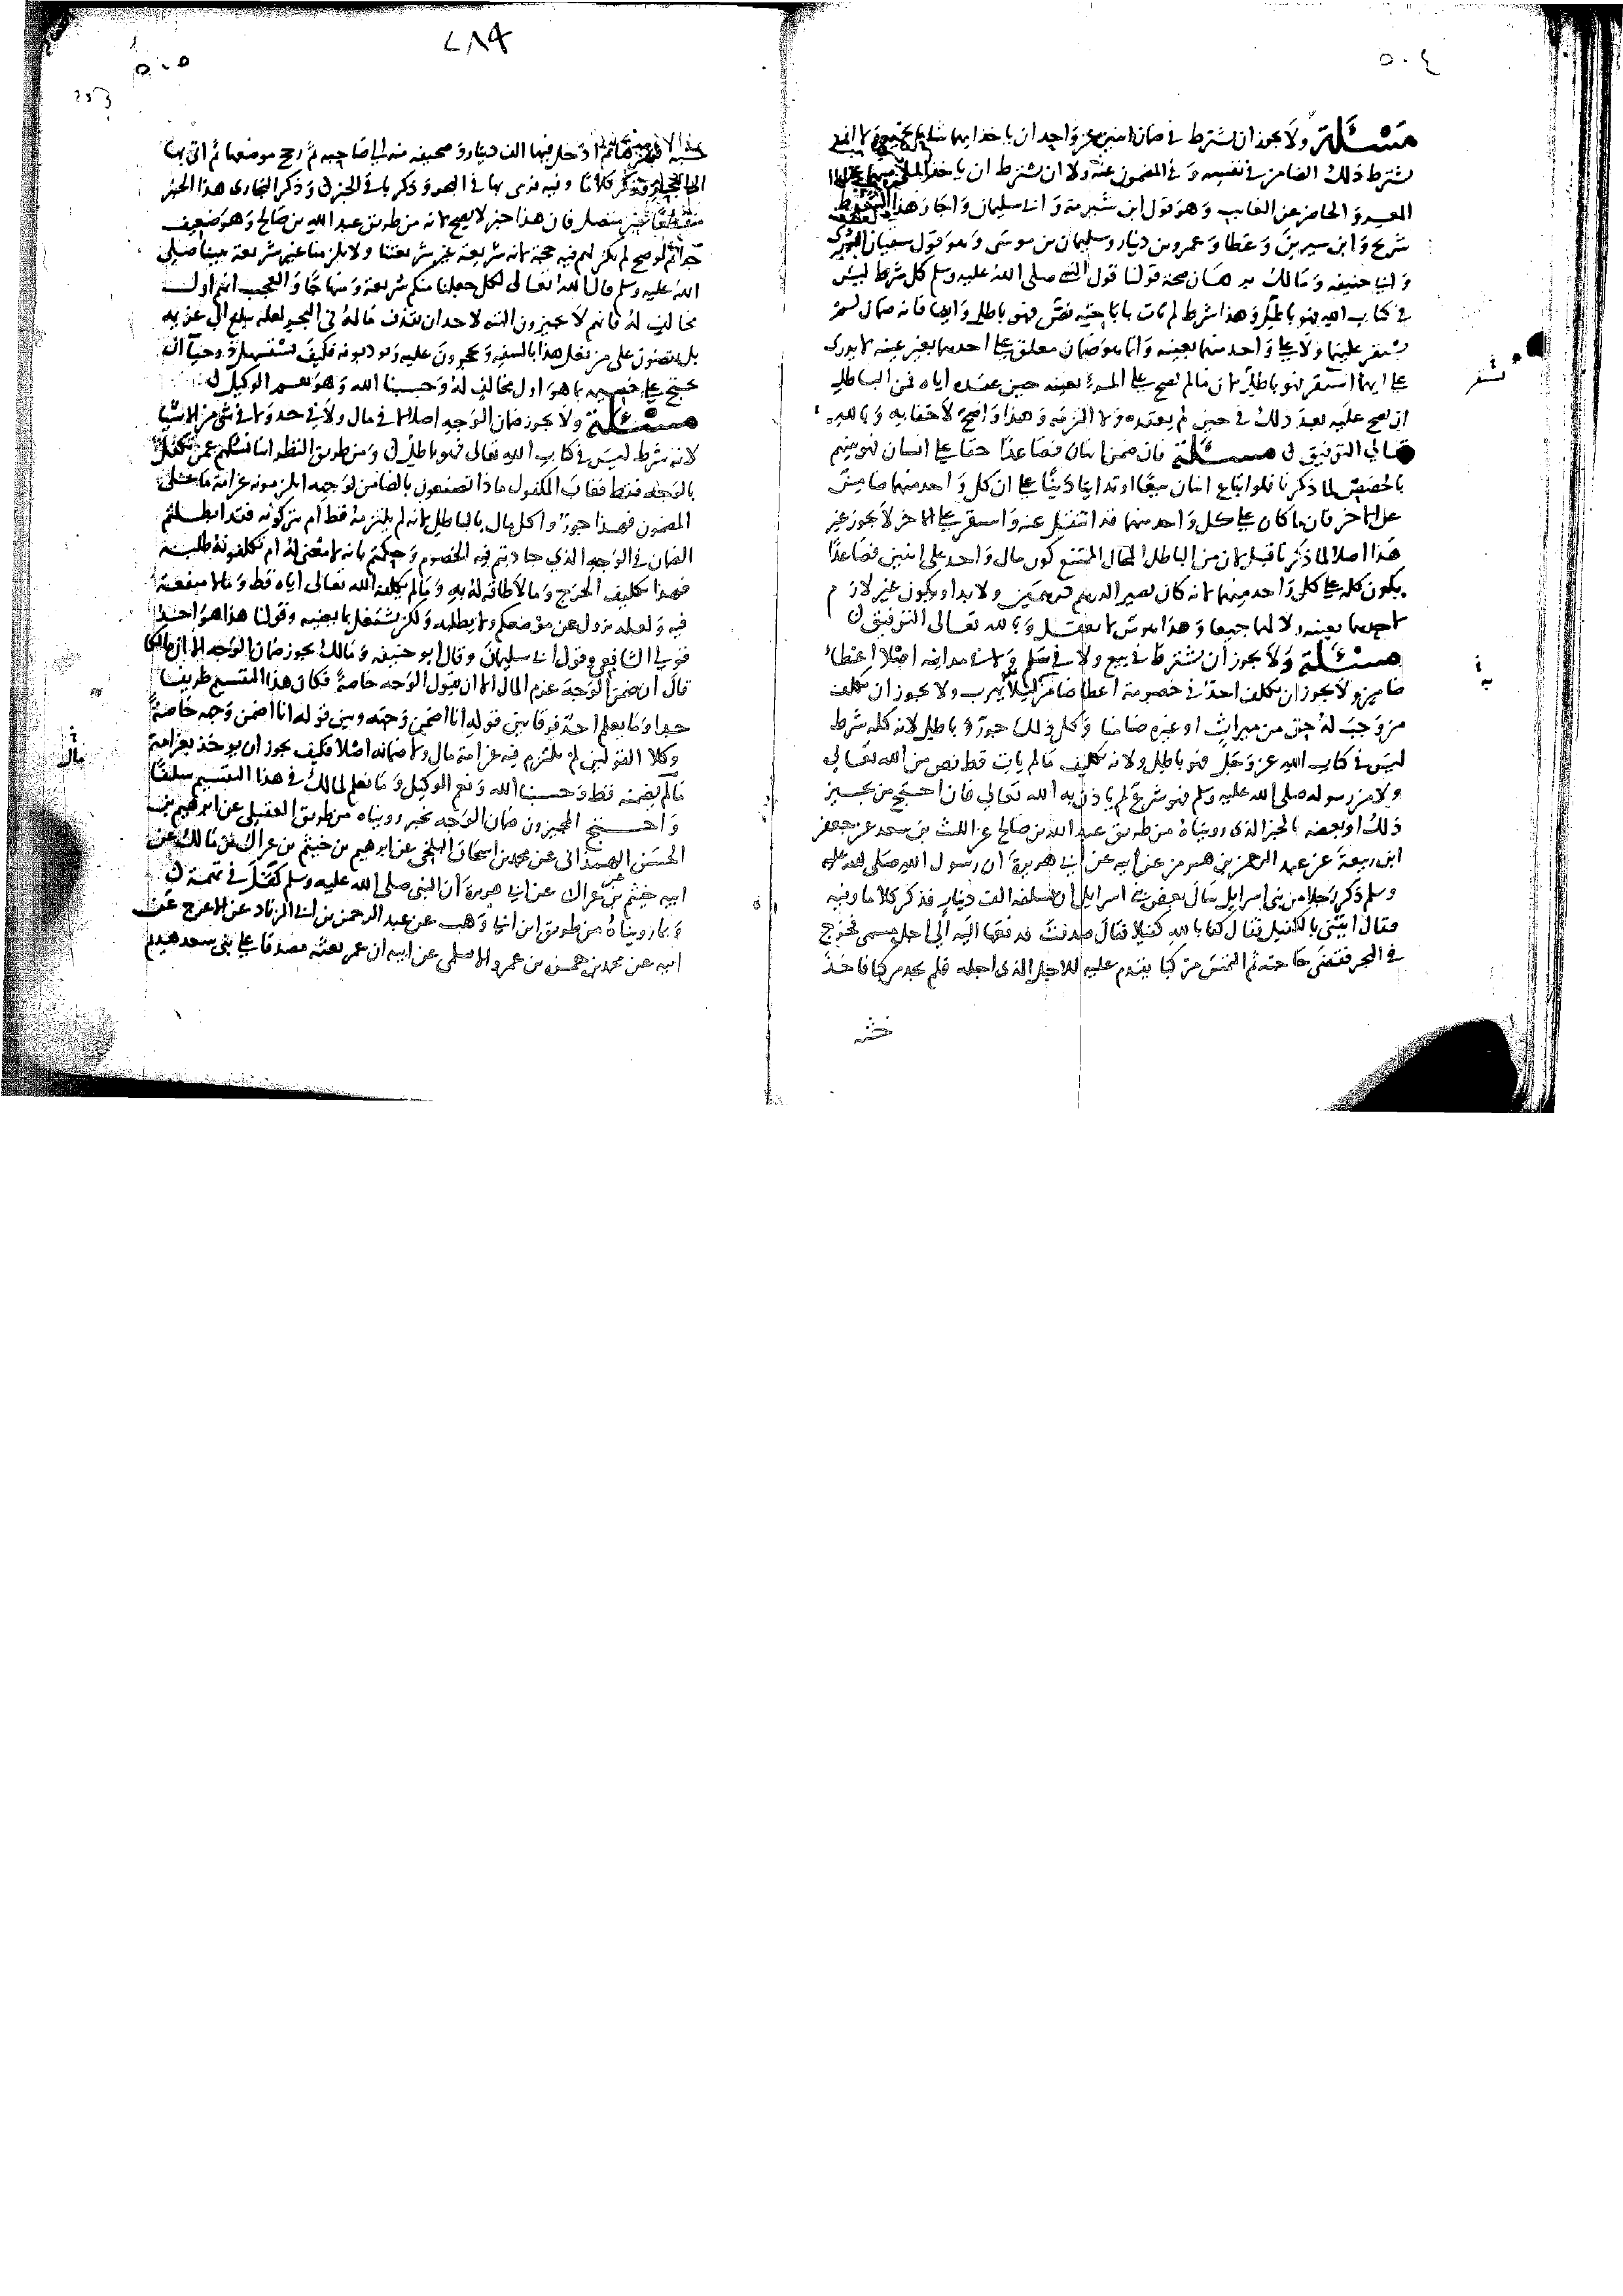 ٥٠٤
مسئلة ولا يجوز ان يشترط في ضمان اثنين عن واحد ان ياخذ ايهما شا
يشترط ذلك الضامن في نفسه وفي المضمون عنه ولا ان يشترط ان ياخذ الملي منهما
المعسر والحاضر عن الغايب وهو قول ابن شبرمة وابي سليمان واجاز هذا الشرط
شريح وابن سيرين وعطا وعمرو بن دينار وسليمان بن موسى وهو قول سفيان الثوري
وابي حنيفه ومالك برهان صحة قولنا قول النبي صلى الله عليه وسلم كل شرط ليس
في كتاب الله فهو باطل وهذا شرط لم يات باباحته نص فهو باطل وايضا فانه ضمان لم
يستقر عليهما ولا على واحد منهما بعينه وانما هو ضمان معلق على احدهما بغير عينه لا يدرى
على ايهما استقر فهو باطل لان ما لم يصح على المرء بعينه حين عقده اياه فمن الباطل
ان يصح عليه بعد ذلك في حين لم يعقده ولا التزمه وهذا واضح لا خفا به وبالله
تعالى التوفيق مسئلة فان ضمن اثنان فصاعدا حقا على انسان فهو بينهم
بالحصص لما ذكرنا فلو ابتاع اثنان بيعا او تداينا دينا على ان كل واحد منهما ضامن
عن الاخر فان ما كان على كل واحد منهما قد انتقل عنه واستقر على الاخر لا يجوز غير
هذا اصلا لما ذكرنا قبل لان من الباطل المحال الممتنع كون مال واحد على اثنين فصاعدا
يكون كله على كل واحد منهما لانه كان يصير الدرهم درهمين ولا بد او يكون غير لازم
لاحدهما بعينه ولا لهما جميعا وهذا هوس لا يعقل وبالله تعالى التوفيق
مسئلة ولا يجوز ان يشترط في بيع ولا في سلم ولا في مداينه اصلا اعطا
ضامن ولا يجوز ان يكلف احد في خصومة اعطا ضامن ليلا يهرب ولا يجوز ان يكلف
من وجب له حق من ميراث او غيره ضامنا وكل ذلك جور وباطل لانه كله شرط
ليس في كتاب الله عز وجل فهو باطل ولانه تكليف ما لم يات قط نص من الله تعالى
ولا من رسوله صلى الله عليه وسلم فهو شرع لم ياذن به الله تعالى فان احتج من يجيز
ذلك او بعضه بالخبر الذي رويناه من طريق عبد الله بن صالح عن الليث بن سعد عن جعفر
ابن ربيعة عن عبد الرحمن بن هرمز عن ابيه عن ابي هريرة ان رسول الله صلى الله عليه
وسلم ذكر رجلا من بني اسرايل سال بعض بني اسرايل ان يسلفه الف دينار فذكر كلاما وفيه
فقال ايتني بالكفيل فقال كفا بالله كفيلا فقال صدقت فدفعها اليه الى اجل مسمى فخرج
في البحر فقضى حاجته ثم التمس مركبا يقدم عليه للاجل الذي اجله فلم يجد مركبا فاخذ
يستقر
خشبه
٢٨٤
٥٠٥
253
خشبه فنقرها ثم ادخل فيها الف دينار وصحيفه منه الى صاحبه ثم زجج موضعها ثم اتى بها
الى البحر فذكر كلاما وفيه فرمى بها في البحر وذكر باقي الخبر وذكر البخاري هذا الخبر
منقطعا غير متصل فان هذا خبر لا يصح لانه من طريق عبد الله بن صالح وهو ضعيف
جدا ثم لو صح لم يكن لهم فيه حجة لانه شريعة غير شريعتنا ولا يلزمنا غير شريعة نبينا صلى
الله عليه وسلم قال الله تعالى لكل جعلنا منكم شريعة ومنهاجا والعجب انهم اول
مخالف له فانهم لا يجيزون البتة لاحد ان يقذف ماله في البحر لعله يبلغ الى غريمه
بل يقضون على من فعل هذا بالسفه ويحجرون عليه ويودبونه فكيف يستسهل ذو حيا ان
يحتج على خصمه بما هو اول مخالف له وحسبنا الله وهو نعم الوكيل
مسئلة ولا يجوز ضمان الوجه اصلا لا في مال ولا في حد ولا في شي من الاشيا
لانه شرط ليس في كتاب الله تعالى فهو باطل ومن طريق النظر اننا نسلهم عمن تكفل
بالوجه فقط فغاب المكفول ماذا تصنعون بالضامن لوجهه اتلزمونه غرامة ما على
المضمون فهذا جور واكل مال بالباطل لانه لم يلتزمه قط ام تتركونه فقد ابطلتم
الضمان في الوجه الذي جادلتم فيه الخصوم وحكمتم بانه لا معنى له ام تكلفونه طلبه
فهذا تكليف الحرج وما لا طاقة له به وما لم يكلفه الله تعالى اياه قط ولا منفعة
فيه ولعله يزول عن موضعكم ولا يطلبه ولكن يشتغل بما يعنيه وقولنا هذا هو احد
قولي الشافعي وقول ابي سليمان وقال ابو حنيفه ومالك يجوز ضمان الوجه الا ان مالكا
قال ان ضمن الوجه غرم المال الا ان يقول الوجه خاصة فكان هذا التقسيم طريفا
جدا وما يعلم احد فرقا بين قوله انا اضمن وجهه وبين قوله انا اضمن وجهه خاصة
وكلا القولين لم يلتزم فيه غرامة مال ولا ضمانه اصلا فكيف يجوز ان يوخذ بغرامة
ما لم يضمنه قط وحسبنا الله ونعم الوكيل وما نعلم لمالك في هذا التقسيم سلفا
واحتج المجيزون ضمان الوجه بخبر رويناه من طريق العقيلي عن ابرهيم بن
الحسن الهمذاني عن محمد بن اسحاق البلخي عن ابرهيم بن خيثم بن عراك بن مالك عن
ابيه خيثم بن عراك عن ابي هريرة ان النبي صلى الله عليه وسلم كفل في تهمة
وبما رويناه من طريق ابن وهب عن عبد الرحمن بن ابي الزناد عن ابيه
عن محمد بن حمزة بن عمرو الاسلمي عن ابيه ان عمر بعثه مصدقا على بني سعد هذيم
مال